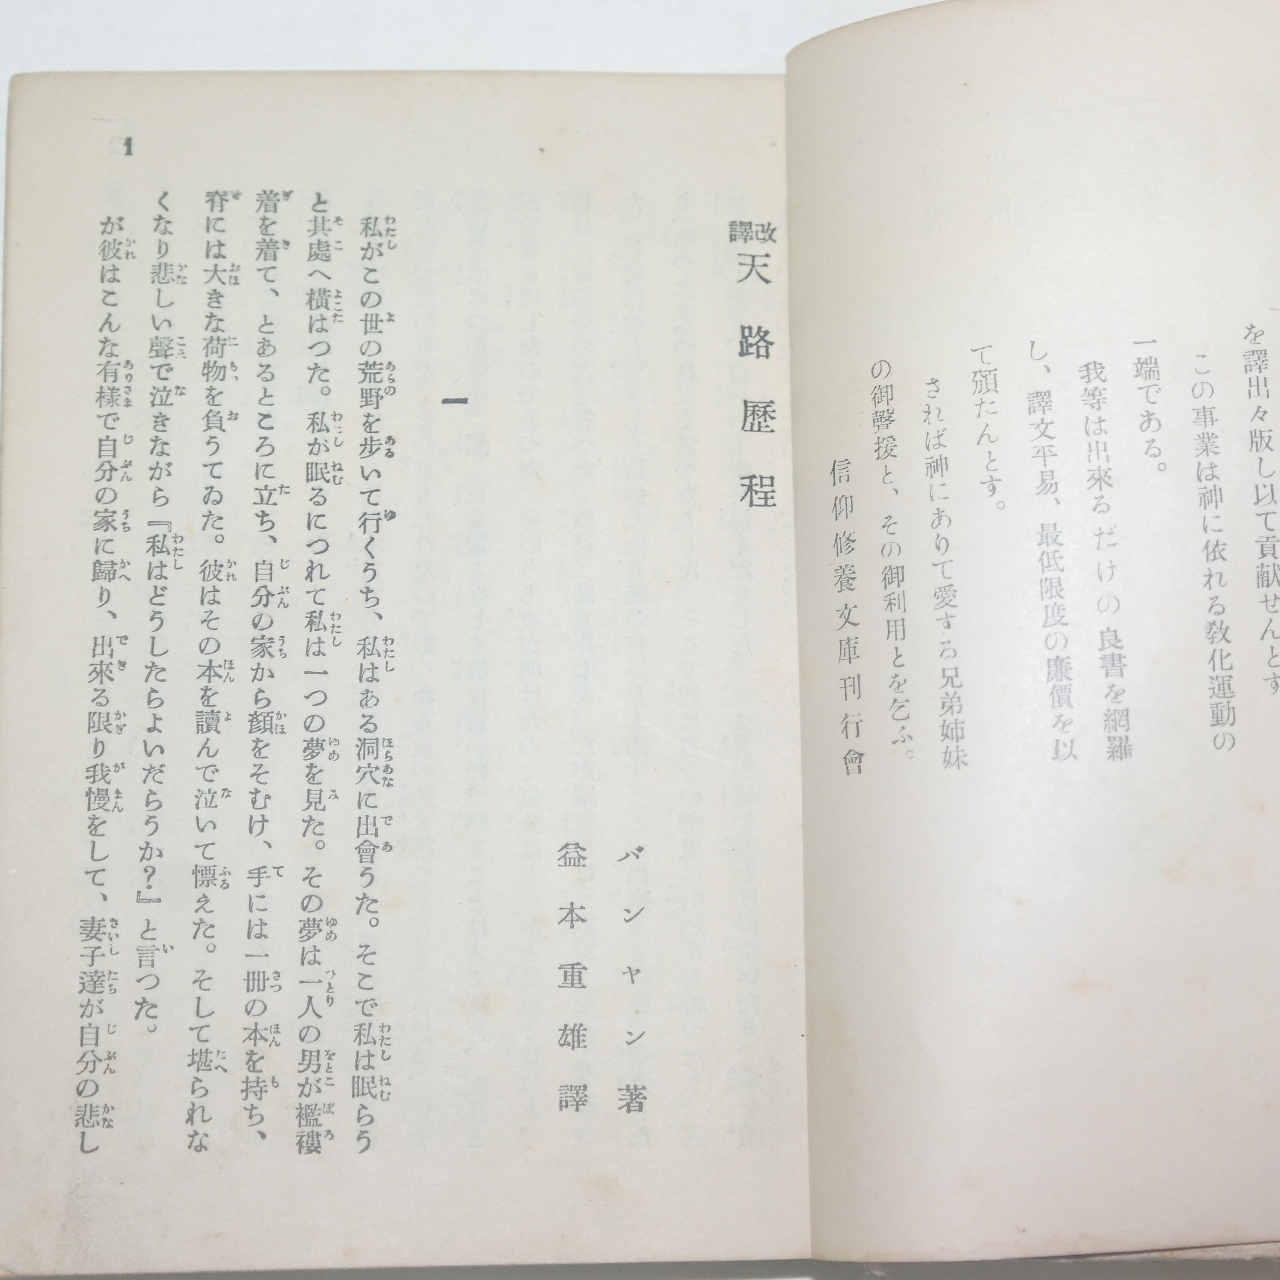 を譯出々版し以て貢献せんとす
この事業は神に依れる敎化運動の
一端である。
我等は出來るだけの良書を網羅
し、譯文平易、最低限度の廉價を以
て頒たんとす。
されば神にありて愛する兄弟姉妹
の御聲援と、その御利用とを乞ふ。
信仰修養文庫刊行會
改譯天路歷程
バンヤン著
益本重雄譯
一
私がこの世の荒野を步いて行くうち、私はある洞穴に出會うた。そこで私は眠らう
と其處へ橫はつた。私が眠るにつれて私は一つの夢を見た。その夢は一人の男が襤褸
着を着て、とあるところに立ち、自分の家から顏をそむけ、手には一冊の本を持ち、
脊には大きな荷物を負うてゐた。彼はその本を讀んで泣いて慓えた。そして堪られな
くなり悲しい聲で泣きながら『私はどうしたらよいだらうか?』と言つた。
が彼はこんな有樣で自分の家に歸り、出來る限り我慢をして、妻子達が自分の悲し
1